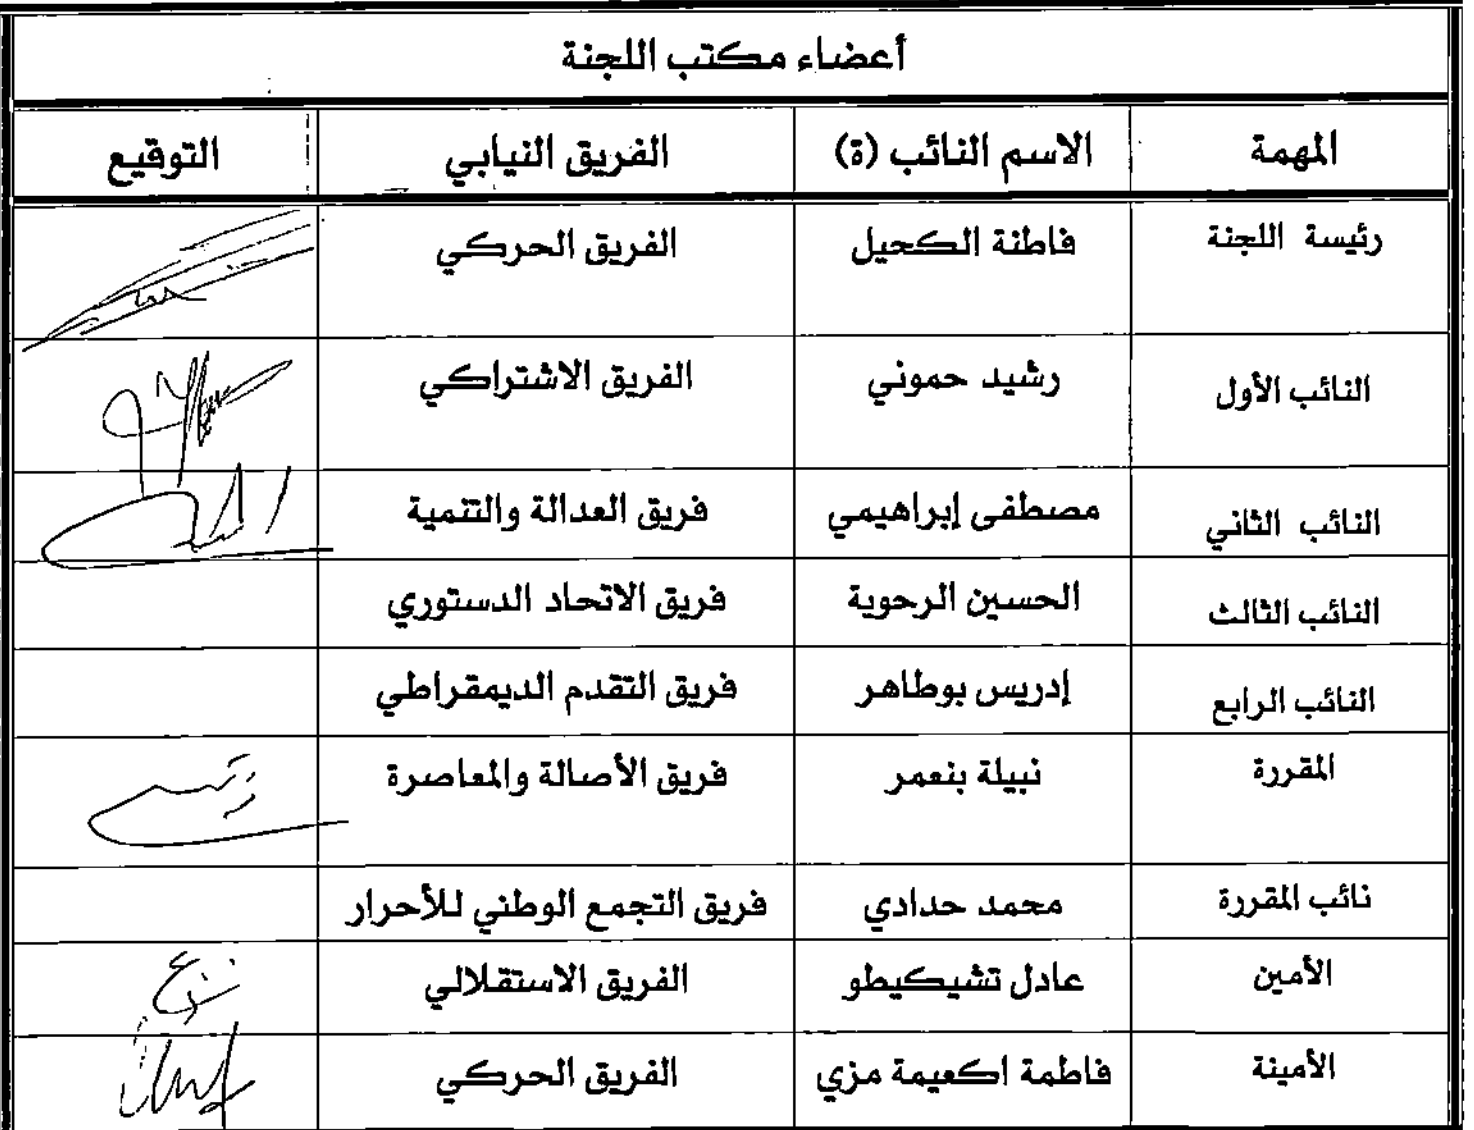 أعضاء مكتب اللجنة
المهمة الاسم النائب (ة) الفريق النيابي التوقيع
رئيسة اللجنة فاطنة الكحيل الفريق الحركي
النائب الأول رشيد حموني الفريق الاشتراكي
النائب الثاني مصطفى إبراهيمي فريق العدالة والتنمية
النائب الثالث الحسين الرحوية فريق الاتحاد الدستوري
النائب الرابع إدريس بوطاهر فريق التقدم الديمقراطي
المقررة نبيلة بنعمر فريق الأصالة والمعاصرة
نائب المقررة محمد حدادي فريق التجمع الوطني للأحرار
الأمين عادل تشيكيطو الفريق الاستقلالي
الأمينة فاطمة اكعيمة مزي الفريق الحركي